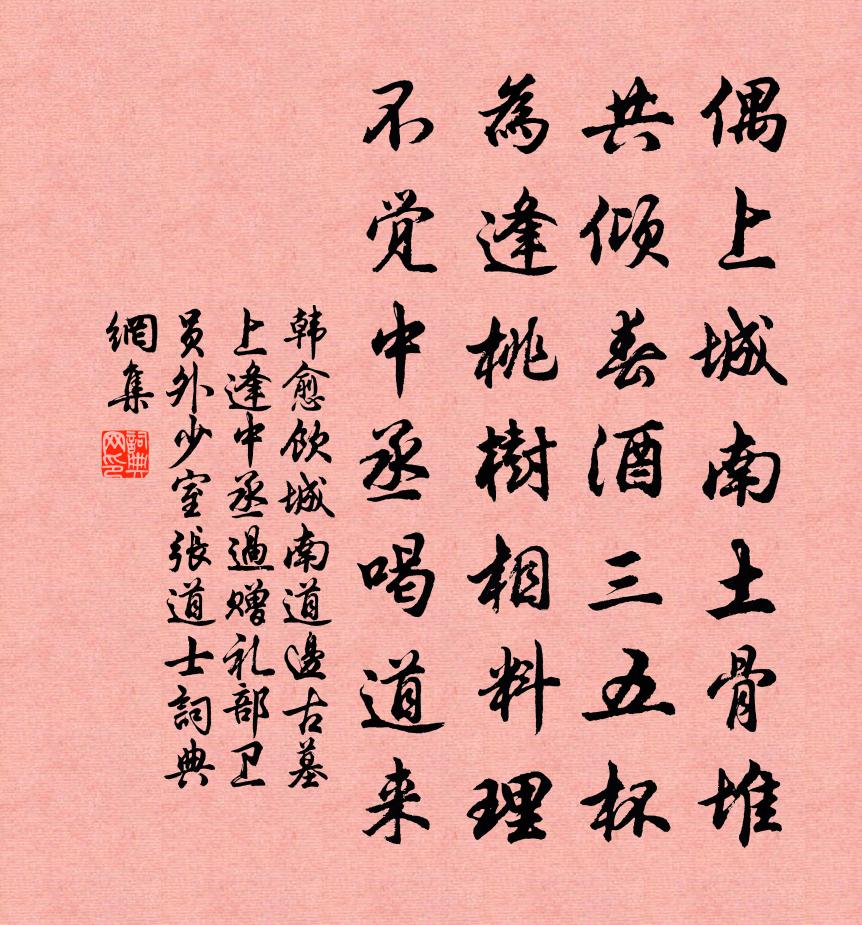 偶上城南土骨堆
共倾春酒三五杯
為逢桃樹相料理
不觉中丞喝道来
韩愈飲城南道邊古墓
上逢中丞過赠礼部卫
员外少室張道士詞典
網集
詞典網印